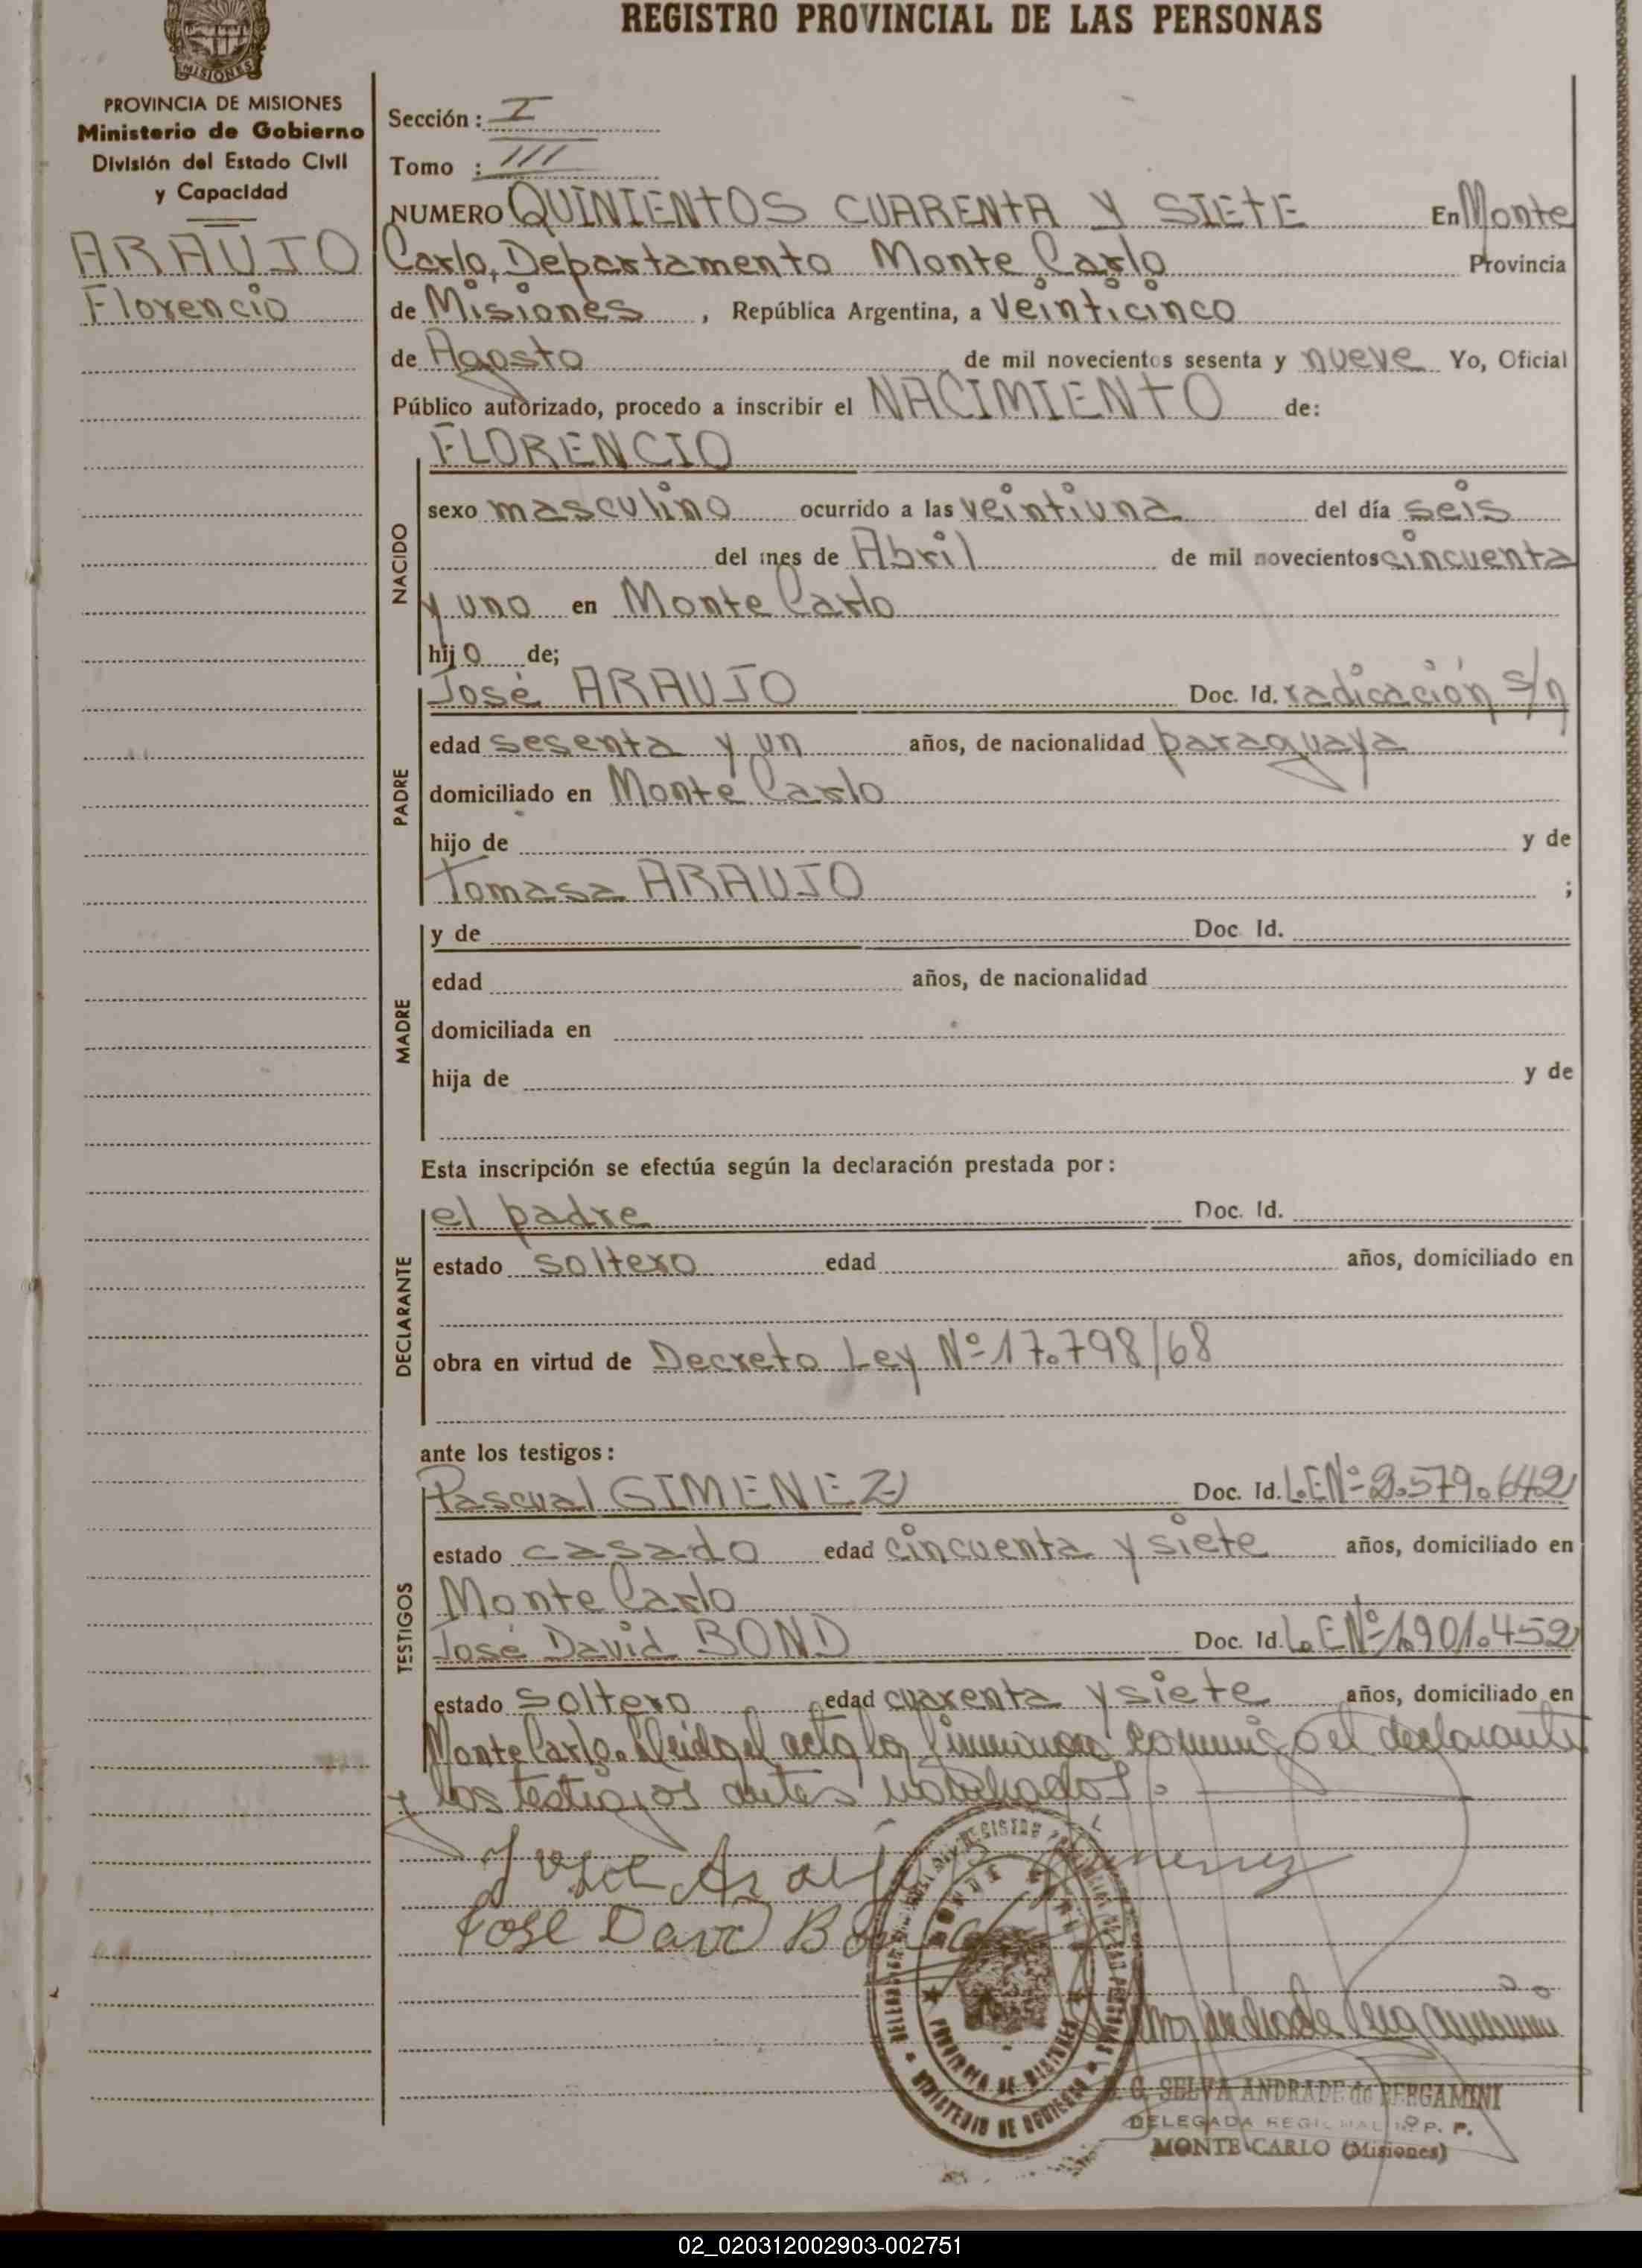 REGISTRO PROVINCIAL DE LAS PERSONAS
MISIONES
PROVINCIA DE MISIONES
Ministerio de Gobierno
División del Estado Civil
y Capacidad
ARAUJO
Florencio
Sección : I
Tomo : III
NUMERO QUINIENTOS CUARENTA Y SIETE En Monte
Carlo, Departamento Monte Carlo Provincia
de Misiones , República Argentina, a veinticinco
de Agosto de mil novecientos sesenta y nueve Yo, Oficial
Público autorizado, procedo a inscribir el NACIMIENTO de:
FLORENCIO
NACIDO
sexo masculino ocurrido a las veintiuna del día seis
del mes de Abril de mil novecientos cincuenta
y uno en Monte Carlo
hijo de;
PADRE
José ARAUJO Doc. Id. radicación s/n
edad sesenta y un años, de nacionalidad paraguaya
domiciliado en Monte Carlo
hijo de y de
Tomasa ARAUJO ;
MADRE
y de Doc Id.
edad años, de nacionalidad
domiciliada en
hija de y de
Esta inscripción se efectúa según la declaración prestada por:
DECLARANTE
el padre Doc. Id.
estado soltero edad años, domiciliado en
obra en virtud de Decreto Ley Nº 17.798/68
ante los testigos:
TESTIGOS
Pascual GIMENEZ Doc. Id. L.E Nº 2.579.642
estado casado edad cincuenta y siete años, domiciliado en
Monte Carlo
José David BOND Doc. Id. L.E Nº 1.901.452
estado soltero edad cuarenta y siete años, domiciliado en
Monte Carlo. Leida el acta la firmaron conmigo el declarante
y los testigos antes nombrados.
Jose Araujo Gimenez
Jose David Bond
PROVINCIA DE MISIONES
MINISTERIO DE GOBIERNO
G. SELVA ANDRADE de BERGAMINI
DELEGADA REGIONAL R. P. P.
MONTE CARLO (Misiones)
02_020312002903-002751